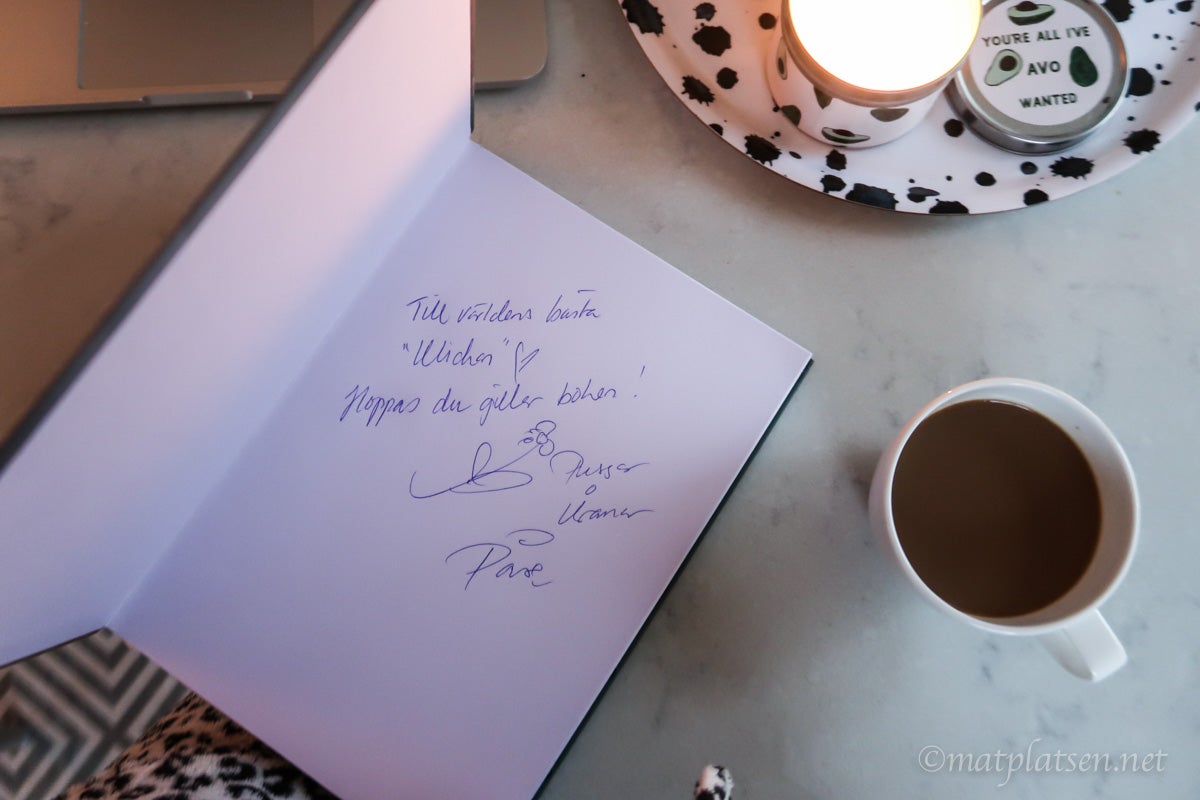 YOU'RE ALL I'VE
AVO
WANTED
Till världens bästa
Hoppas du gillar boken!
Pussar
o
Kramar
©matplatsen.net